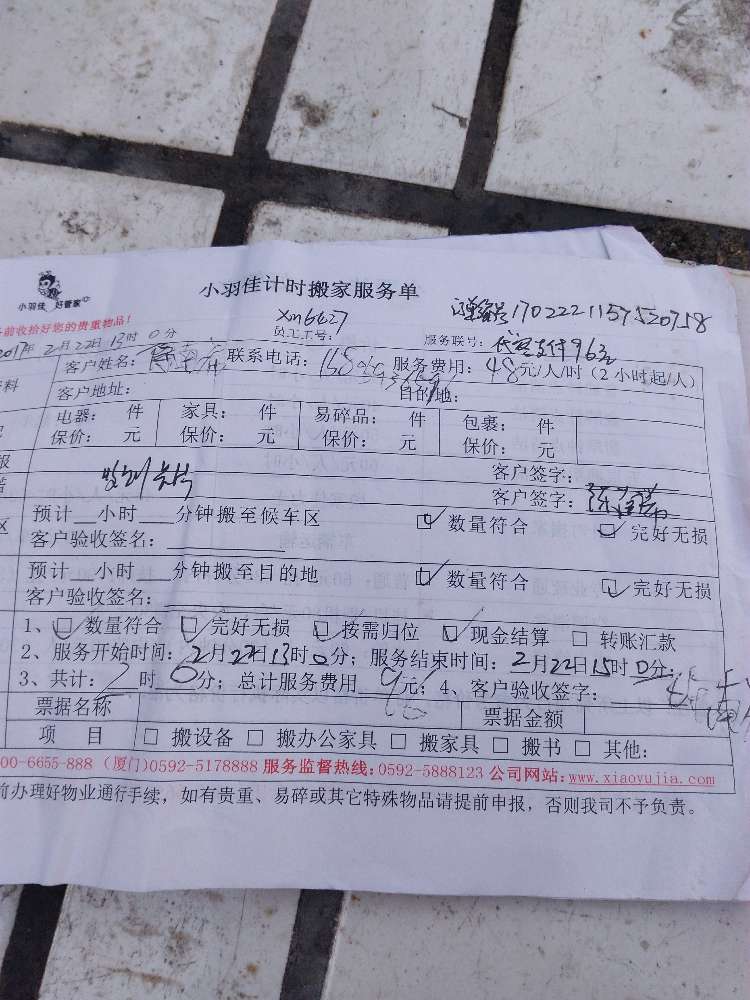 小羽佳 好管家
小羽佳计时搬家服务单
订单编号1702221157520758
前收拾好您的贵重物品!
xm6627
员工工号:
服务联号: 支付96元
2017年2月22日13时0分
客户姓名: 联系电话: 服务费用: 48元/人/时(2小时起/人)
客户地址: 目的地:
电器: 件 家具: 件 易碎品: 件 包裹: 件
保价: 元 保价: 元 保价: 元 保价: 元
客户签字:
客户签字:
预计__小时___分钟搬至候车区 ☑ 数量符合 ☑ 完好无损
客户验收签名:
预计__小时___分钟搬至目的地 ☑ 数量符合 ☑ 完好无损
客户验收签名:
1、☑ 数量符合 ☑ 完好无损 ☑ 按需归位 ☑ 现金结算 □ 转账汇款
2、服务开始时间: 2月22日13时0分; 服务结束时间: 2月22日15时0分;
3、共计: 2时0分; 总计服务费用 96元; 4、客户验收签字:
票据名称 票据金额
项 目 □ 搬设备 □ 搬办公家具 □ 搬家具 □ 搬书 □ 其他:
00-6655-888 (厦门)0592-5178888 服务监督热线:0592-5888123 公司网站:www.xiaoyujia.com
前办理好物业通行手续,如有贵重、易碎或其它特殊物品请提前申报,否则我司不予负责。